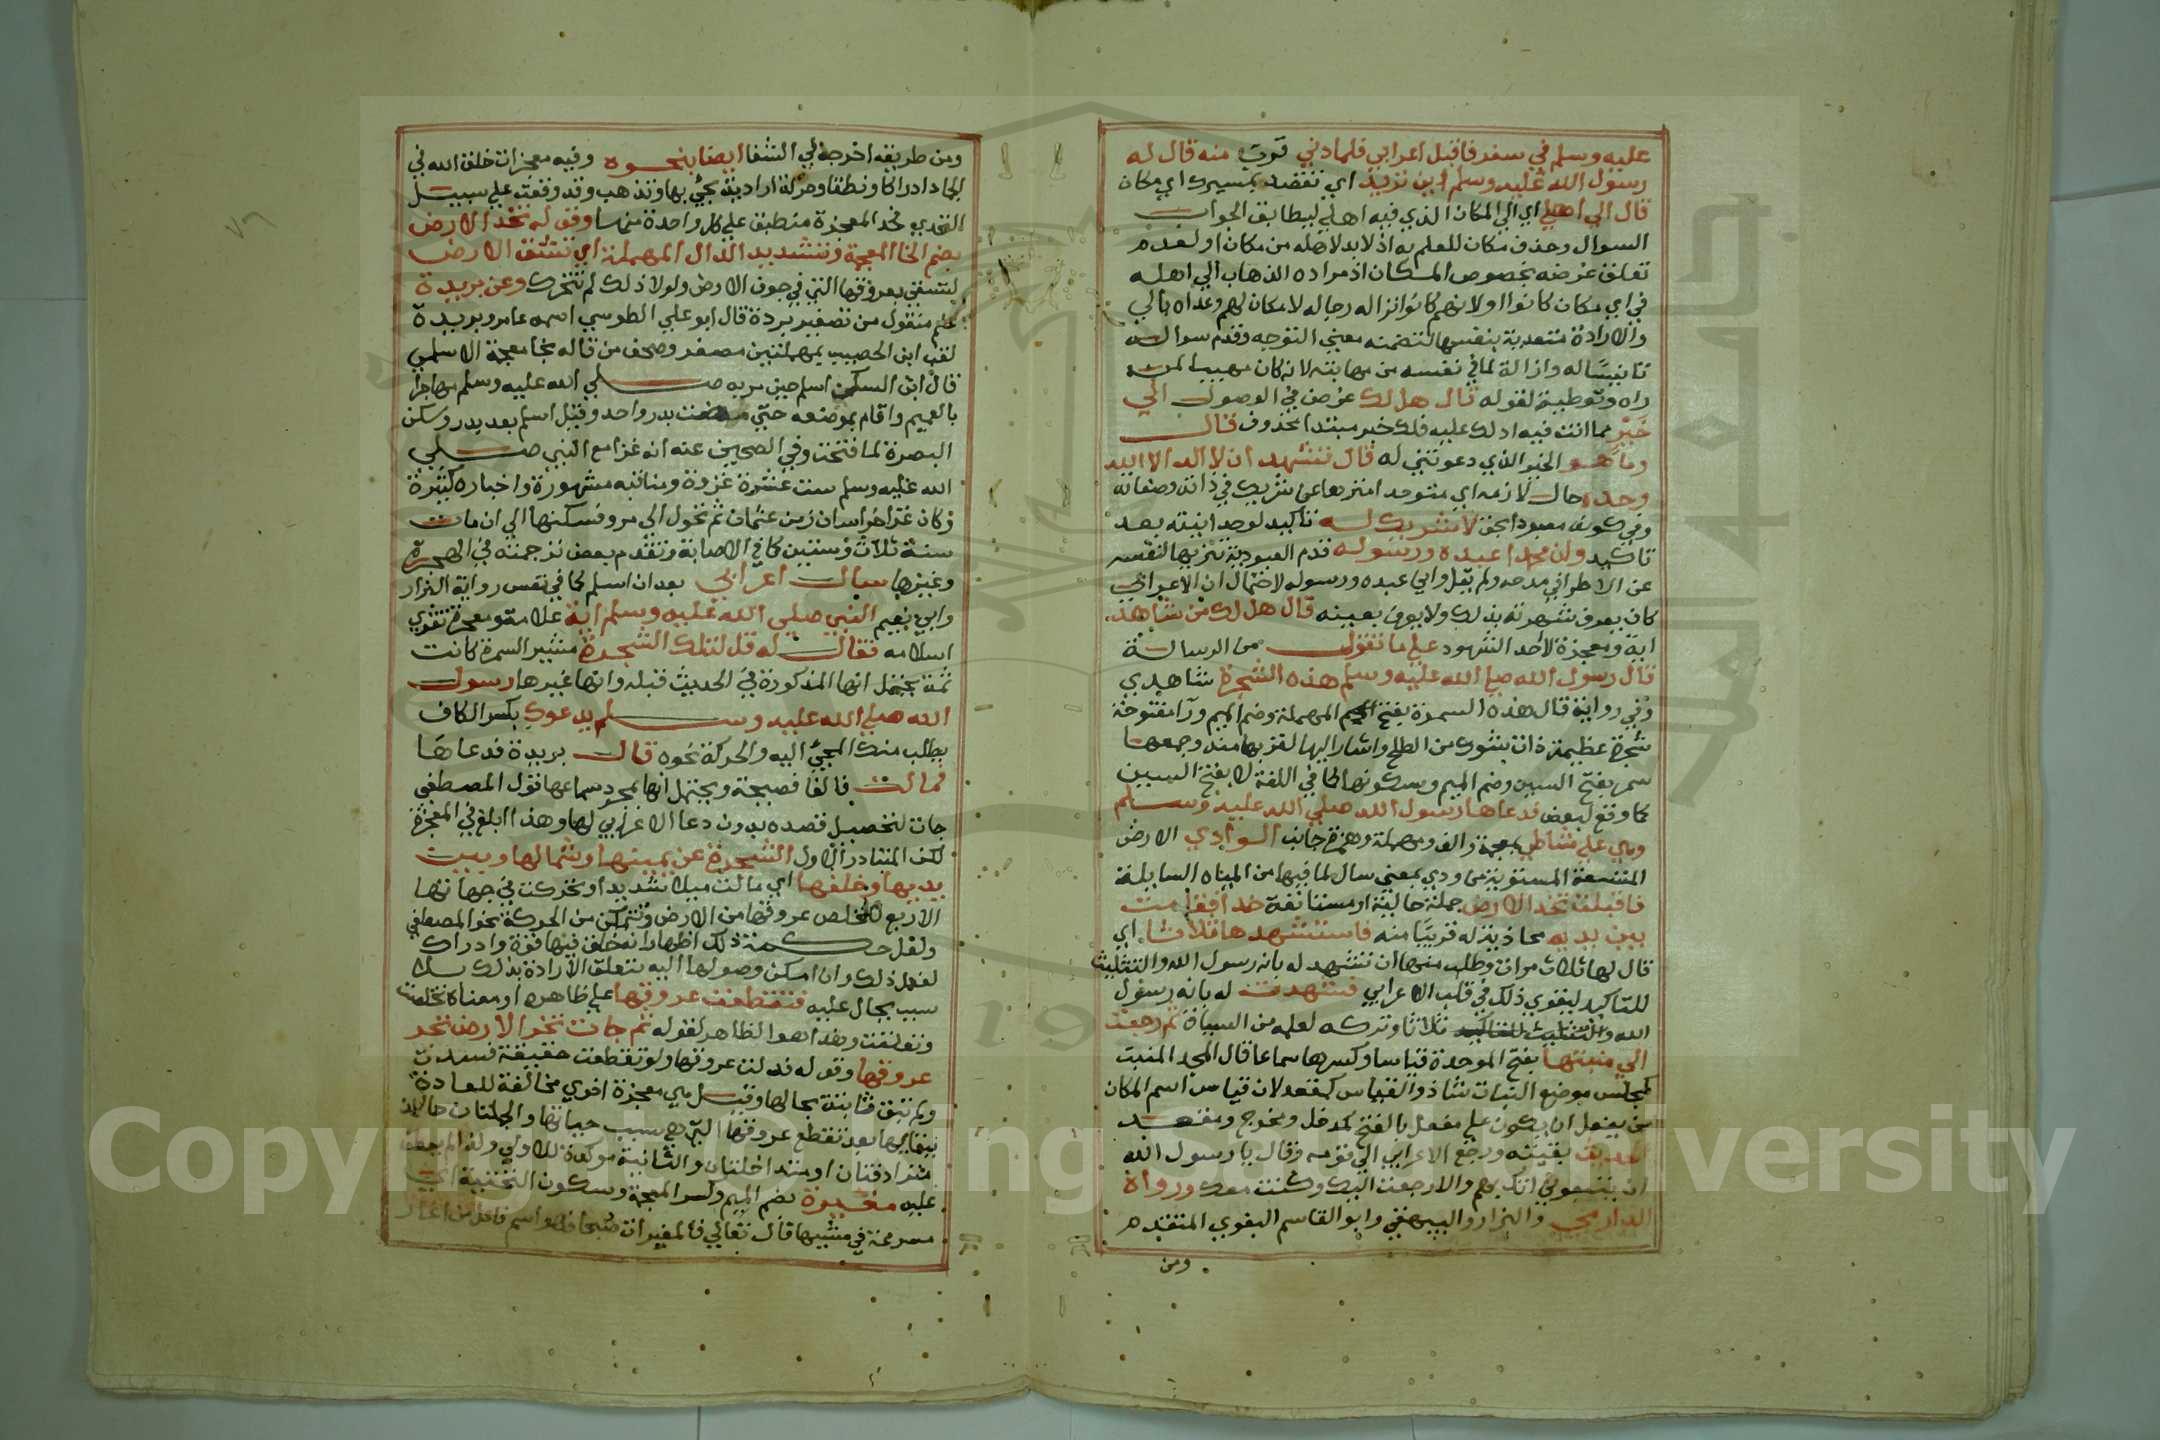 عليه وسلم في سفر فاقبل اعرابي فلما دني قرب منه قال له
رسول الله عليه وسلم اين تريد اي تقصد بمسيرك اي مكان
قال الي اهلي اي الي المكان الذي فيه اهلي ليطابق الجواب
السوال وحذف مكان للعلم به اذ لابد لاهله من مكان او لعدم
تعلق غرضه بخصوص المكان اذ مراده الذهاب الي اهله
في اي مكان كانوا اولانهم كانوا نزاله رحاله لا مكان لهم وعداه بالي
والارادة متعدية بنفسها لتضمنه معني التوجه وقدم سواله
تانيسا له وازالة لما في نفسه من مهابته لانه كان مهيبا لمن
راه وتوطية لقوله قال هل لك غرض في الوصول الي
خير مما انت فيه ادلك عليه فلك خبر مبتدا محذوف قال
وما هو الخير الذي دعوتني له قال تشهد ان لا اله الا الله
وحده حال لازمه اي متوحد امنزها عن شريك في ذاته وصفاته
وفي كونه معبودا بحق لا شريك له تاكيد لوحدانيته بعد
تاكيد وان محمدا عبده ورسوله قدم العبودية تنزيها لنفسه
عن الاطراء في مدحه ولم يقل واني عبده ورسوله لاحتمال ان الاعرابي
كان يعرف شهرته بذلك ولا يعرف بعينه قال هل لك من شاهد
اية ومعجزة لاحد الشهود علي ما تقول من الرسالة
قال رسول الله صلي الله عليه وسلم هذه الشجرة شاهدي
وفي رواية قال هذه السمرة بفتح المهملة وضم الميم ورا مفتوحة
شجرة عظيمة ذات شوك من الطلح واشار اليها لقربها منه وجمعها
سمر بفتح السين وضم الميم وسكونها كما في اللغة لا بفتح السين
كما وقع لبعض فدعاها رسول الله صلي الله عليه وسلم
وهي علي شاطي بمعجمة والف ومهملة وهمزة جانب الوادي الارض
المتسعة المستوية من ودي بمعني سال لما فيها من المياه السايلة
فاقبلت تخد الارض جملة حالية او مستانفة خدا فقامت
بين يديه محاذية له قريبا منه فاستشهدها ثلاثا اي
قال لها ثلاث مرات وطلب منها ان تشهد له بانه رسول الله والتثليث
للتاكيد ليقوي ذلك في قلب الاعرابي فشهدت له بانه رسول
الله ثلاثا وتركه لعلمه من السياق ثم رجعت
الي منبتها بفتح الموحدة قياسا وكسرها سماعا قال المجد المنبت
كمجلس موضع النبات شاذ والقياس كمقعد لان قياس اسم المكان
من يفعل ان يكون علي مفعل بالفتح كمدخل ومخرج ومقعد
بقيته ورجع الاعرابي الي قومه وقال يا رسول الله
ان يتبعوني اتك بهم والا رجعت اليك وكنت معك ورواه
الدارمي والبزار والبيهقي وابو القاسم البغوي المتقدم
ومن
ومن طريقه اخرجه في الشفا ايضا بنحوه وفيه معجزات خلق الله في
الجماد ادراكا ونطقا وحركة ارادية تجي بها وتذهب وقد وقعت علي سبيل
التحدي فحد المعجزة منطبق علي كل واحدة منها وقوله تخد الارض
بضم الخا المعجمة وتشديد الدال المهملة اي تشق الارض
لتسقي بعروقها التي في جوف الارض ولولا ذلك لم تتحرك وعن بريدة
علم منقول من تصغير بردة قال ابو علي الطوسي اسمه عامر وبريدة
لقب ابن الحصيب بمهملتين مصغر وصحف من قاله بخا معجمة الاسلمي
قال ابن السكن اسلم حين مر به صلي الله عليه وسلم مهاجرا
بالغميم واقام بموضعه حتي مضت بدر واحد وقيل اسلم بعد بدر وسكن
البصرة لما فتحت وفي الصحيحين عنه انه غزا مع النبي صلي
الله عليه وسلم ست عشرة غزوة ومناقبه مشهورة واخباره كثيرة
وكان غزا خراسان زمن عثمان ثم تحول الي مرو فسكنها الي ان مات
سنة ثلاث وستين كما في الاصابة وتقدم بعض ترجمته في الهجرة
وغيرها سال اعرابي بعد ان اسلم كما في نفس رواية البزار
وابي نعيم النبي صلي الله عليه وسلم اية علامة ومعجزة تقوي
اسلامه فقال له قل لتلك الشجرة مشير السمرة كانت
ثمة يحتمل انها المذكورة في الحديث قبله وانها غيرها رسول
الله صلي الله عليه وسلم يدعوك بكسر الكاف
يطلب منك المجي اليه والحركة نحوه قال بريدة فدعاها
فمالت فالفا فصيحة ويحتمل انها بمجرد سماعها قول المصطفي
جات لتحصيل قصده بدون دعا الاعرابي لها وهذا ابلغ في المعجزة
لكن المتبادر الاول الشجرة عن يمينها وشمالها وبين
يديها وخلفها اي مالت ميلا شديدا وتحركت في جهاتها
الاربع لتخلص عروقها من الارض وتتمكن من الحركة نحو المصطفي
ولعل حكمة ذلك اظهار انه خلق فيها قوة وادراك
لفعل ذلك وان امكن وصولها اليه بتعلق الارادة بذلك بلا
سبب يحال عليه فتقطعت عروقها علي ظاهره او معناه تخلصت
وتعلقت وهذا هو الظاهر لقوله ثم جات تخد الارض تجر
عروقها وقوله فدلت عروقها ولو تقطعت حقيقة فسدت
ولم تبق ثابتة بحالها وقيل هي معجزة اخري مخالفة للعادة
بقائها بعد تقطع عروقها التي هي سبب حياتها والجملتان حالان
مترادفتان او متداخلتان والثانية موكدة للاولي
عليه مغيرة بضم الميم وكسر المعجمة وسكون التحتية اي
مسرعة في مشيها قال تعالي فالمغيرات صبحا فهو اسم فاعل من اغار